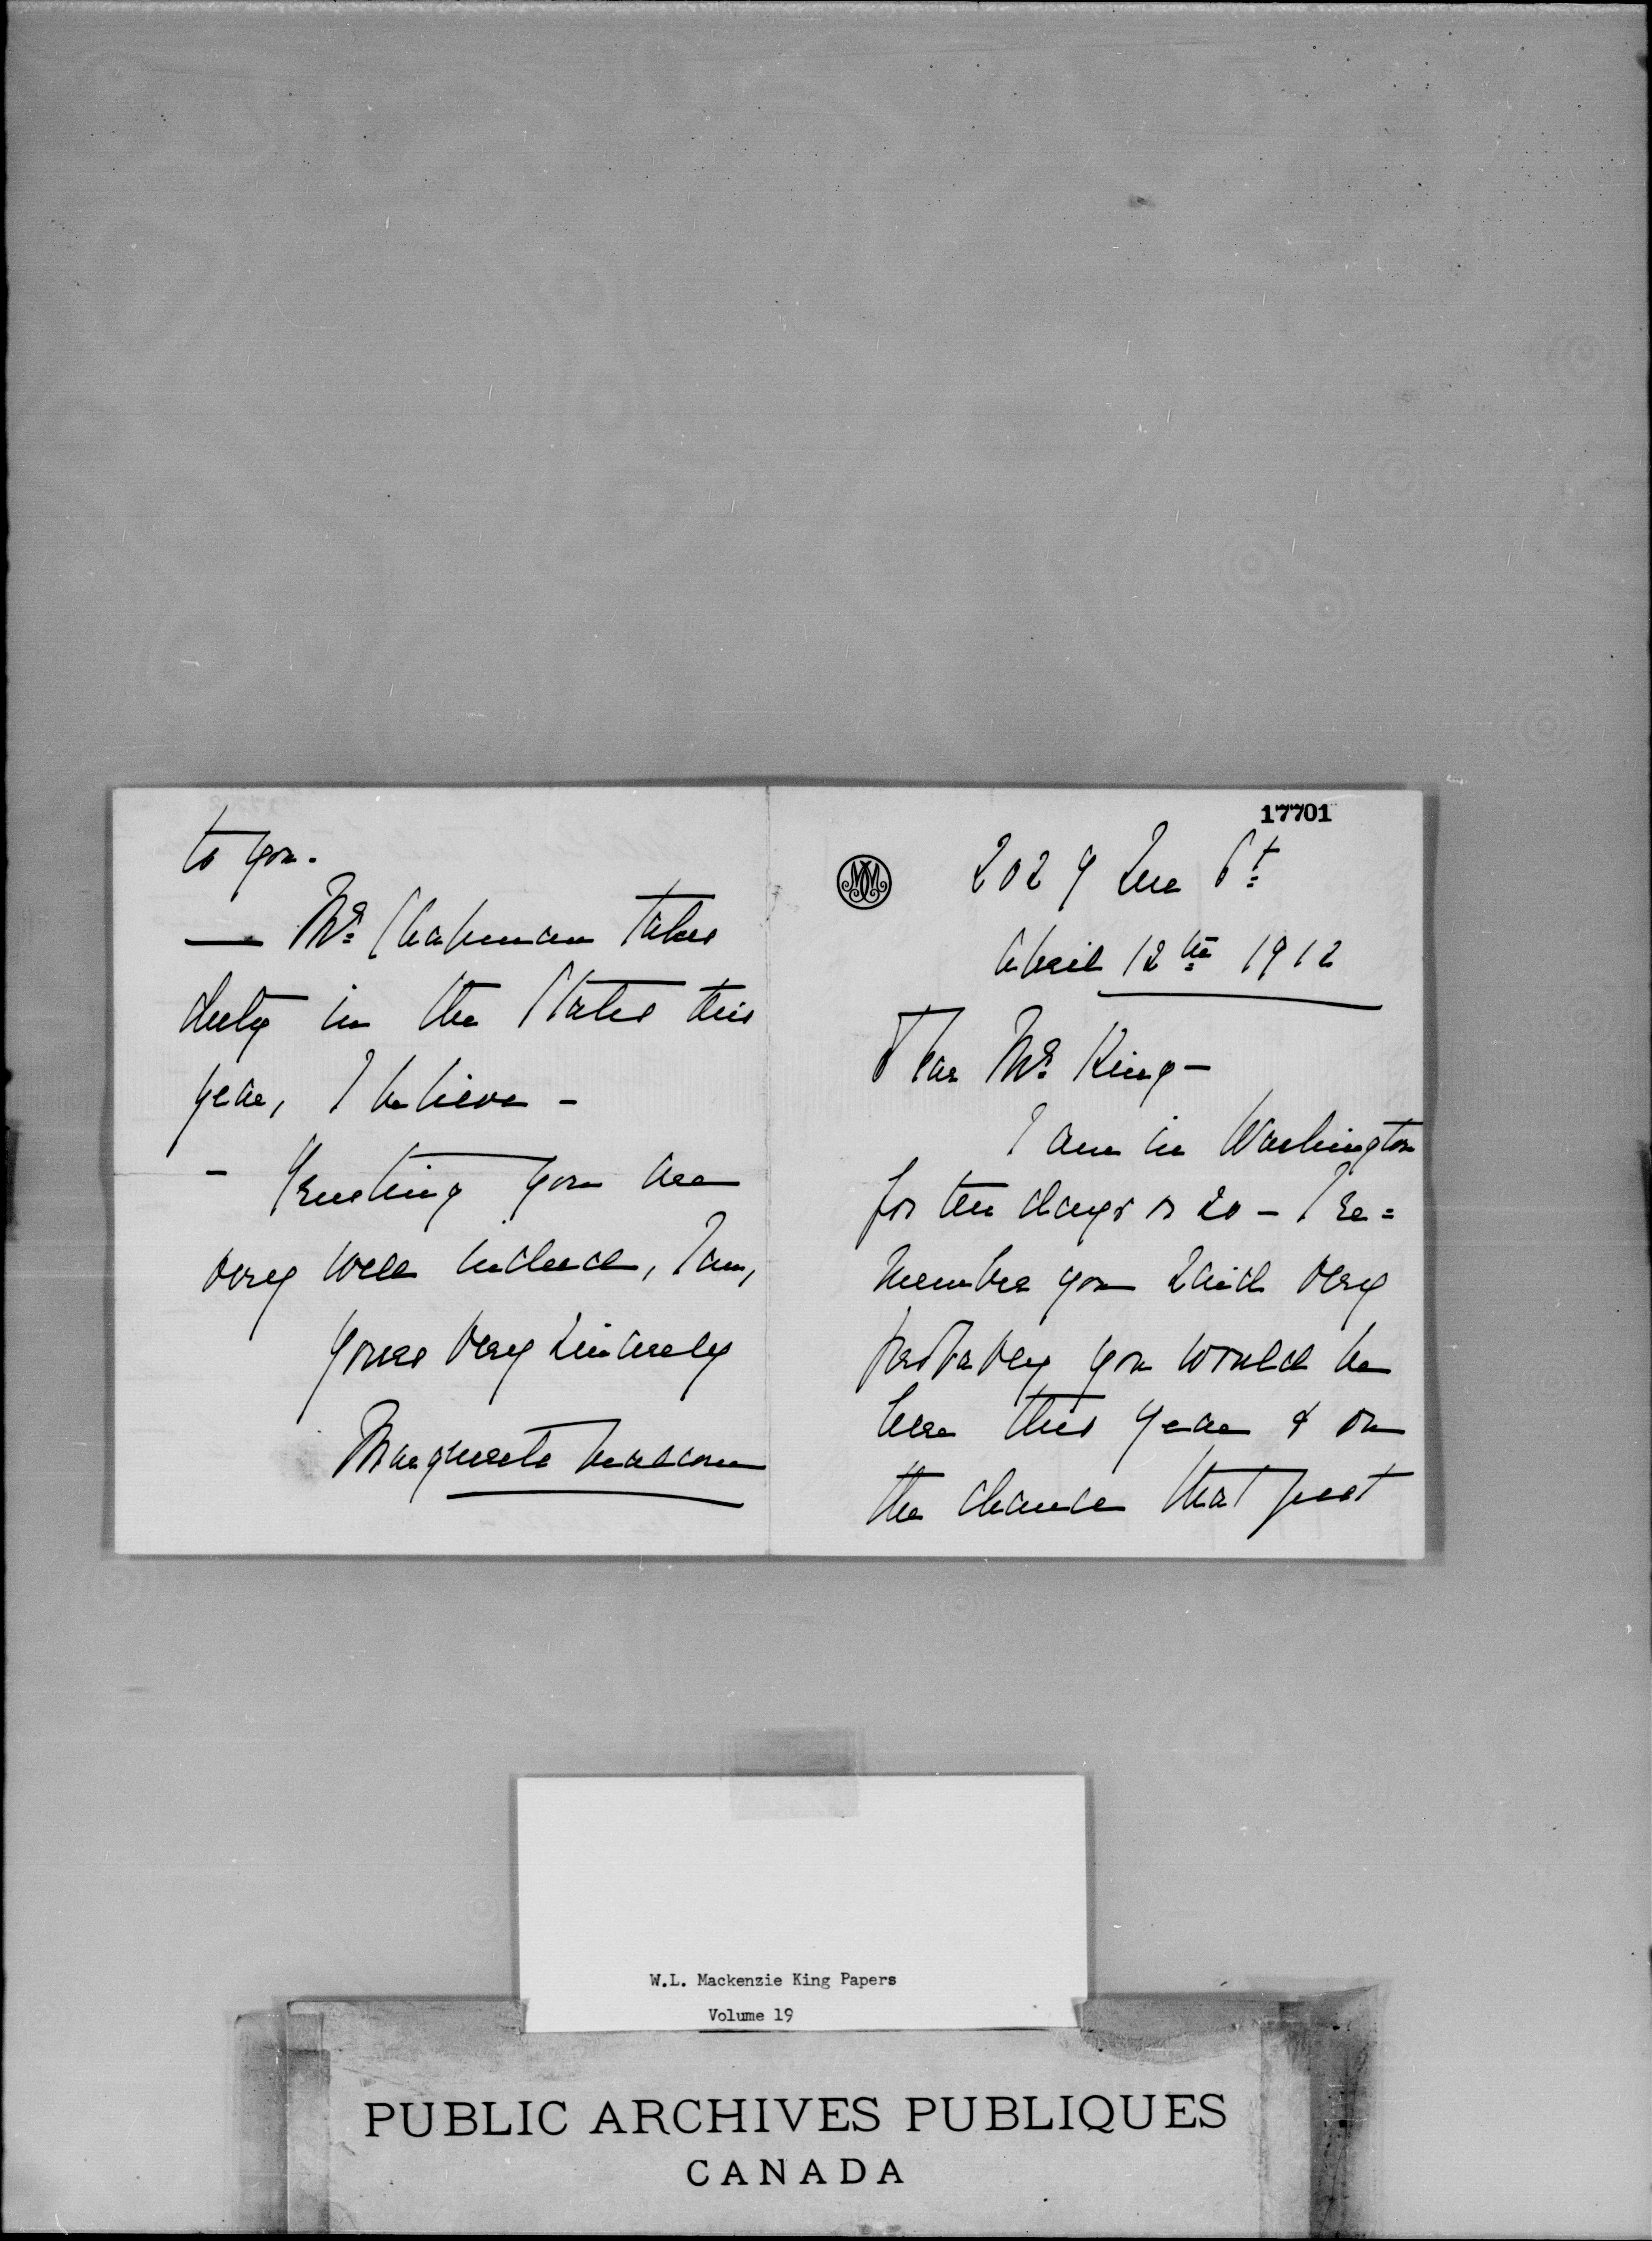 17701
2029 Que St
April 12th 1912
Dear Mr King —
I am in Washington
for ten days or so — I re=
member you said very
probably you would be
here this year & on
the chance that just
to you.
— Mr Chapman takes
duty in the States this
year, I believe —
— Trusting you are
very well indeed, I am,
yours very sincerely
Marguerite
W.L. Mackenzie King Papers
Volume 19
PUBLIC ARCHIVES PUBLIQUES
CANADA